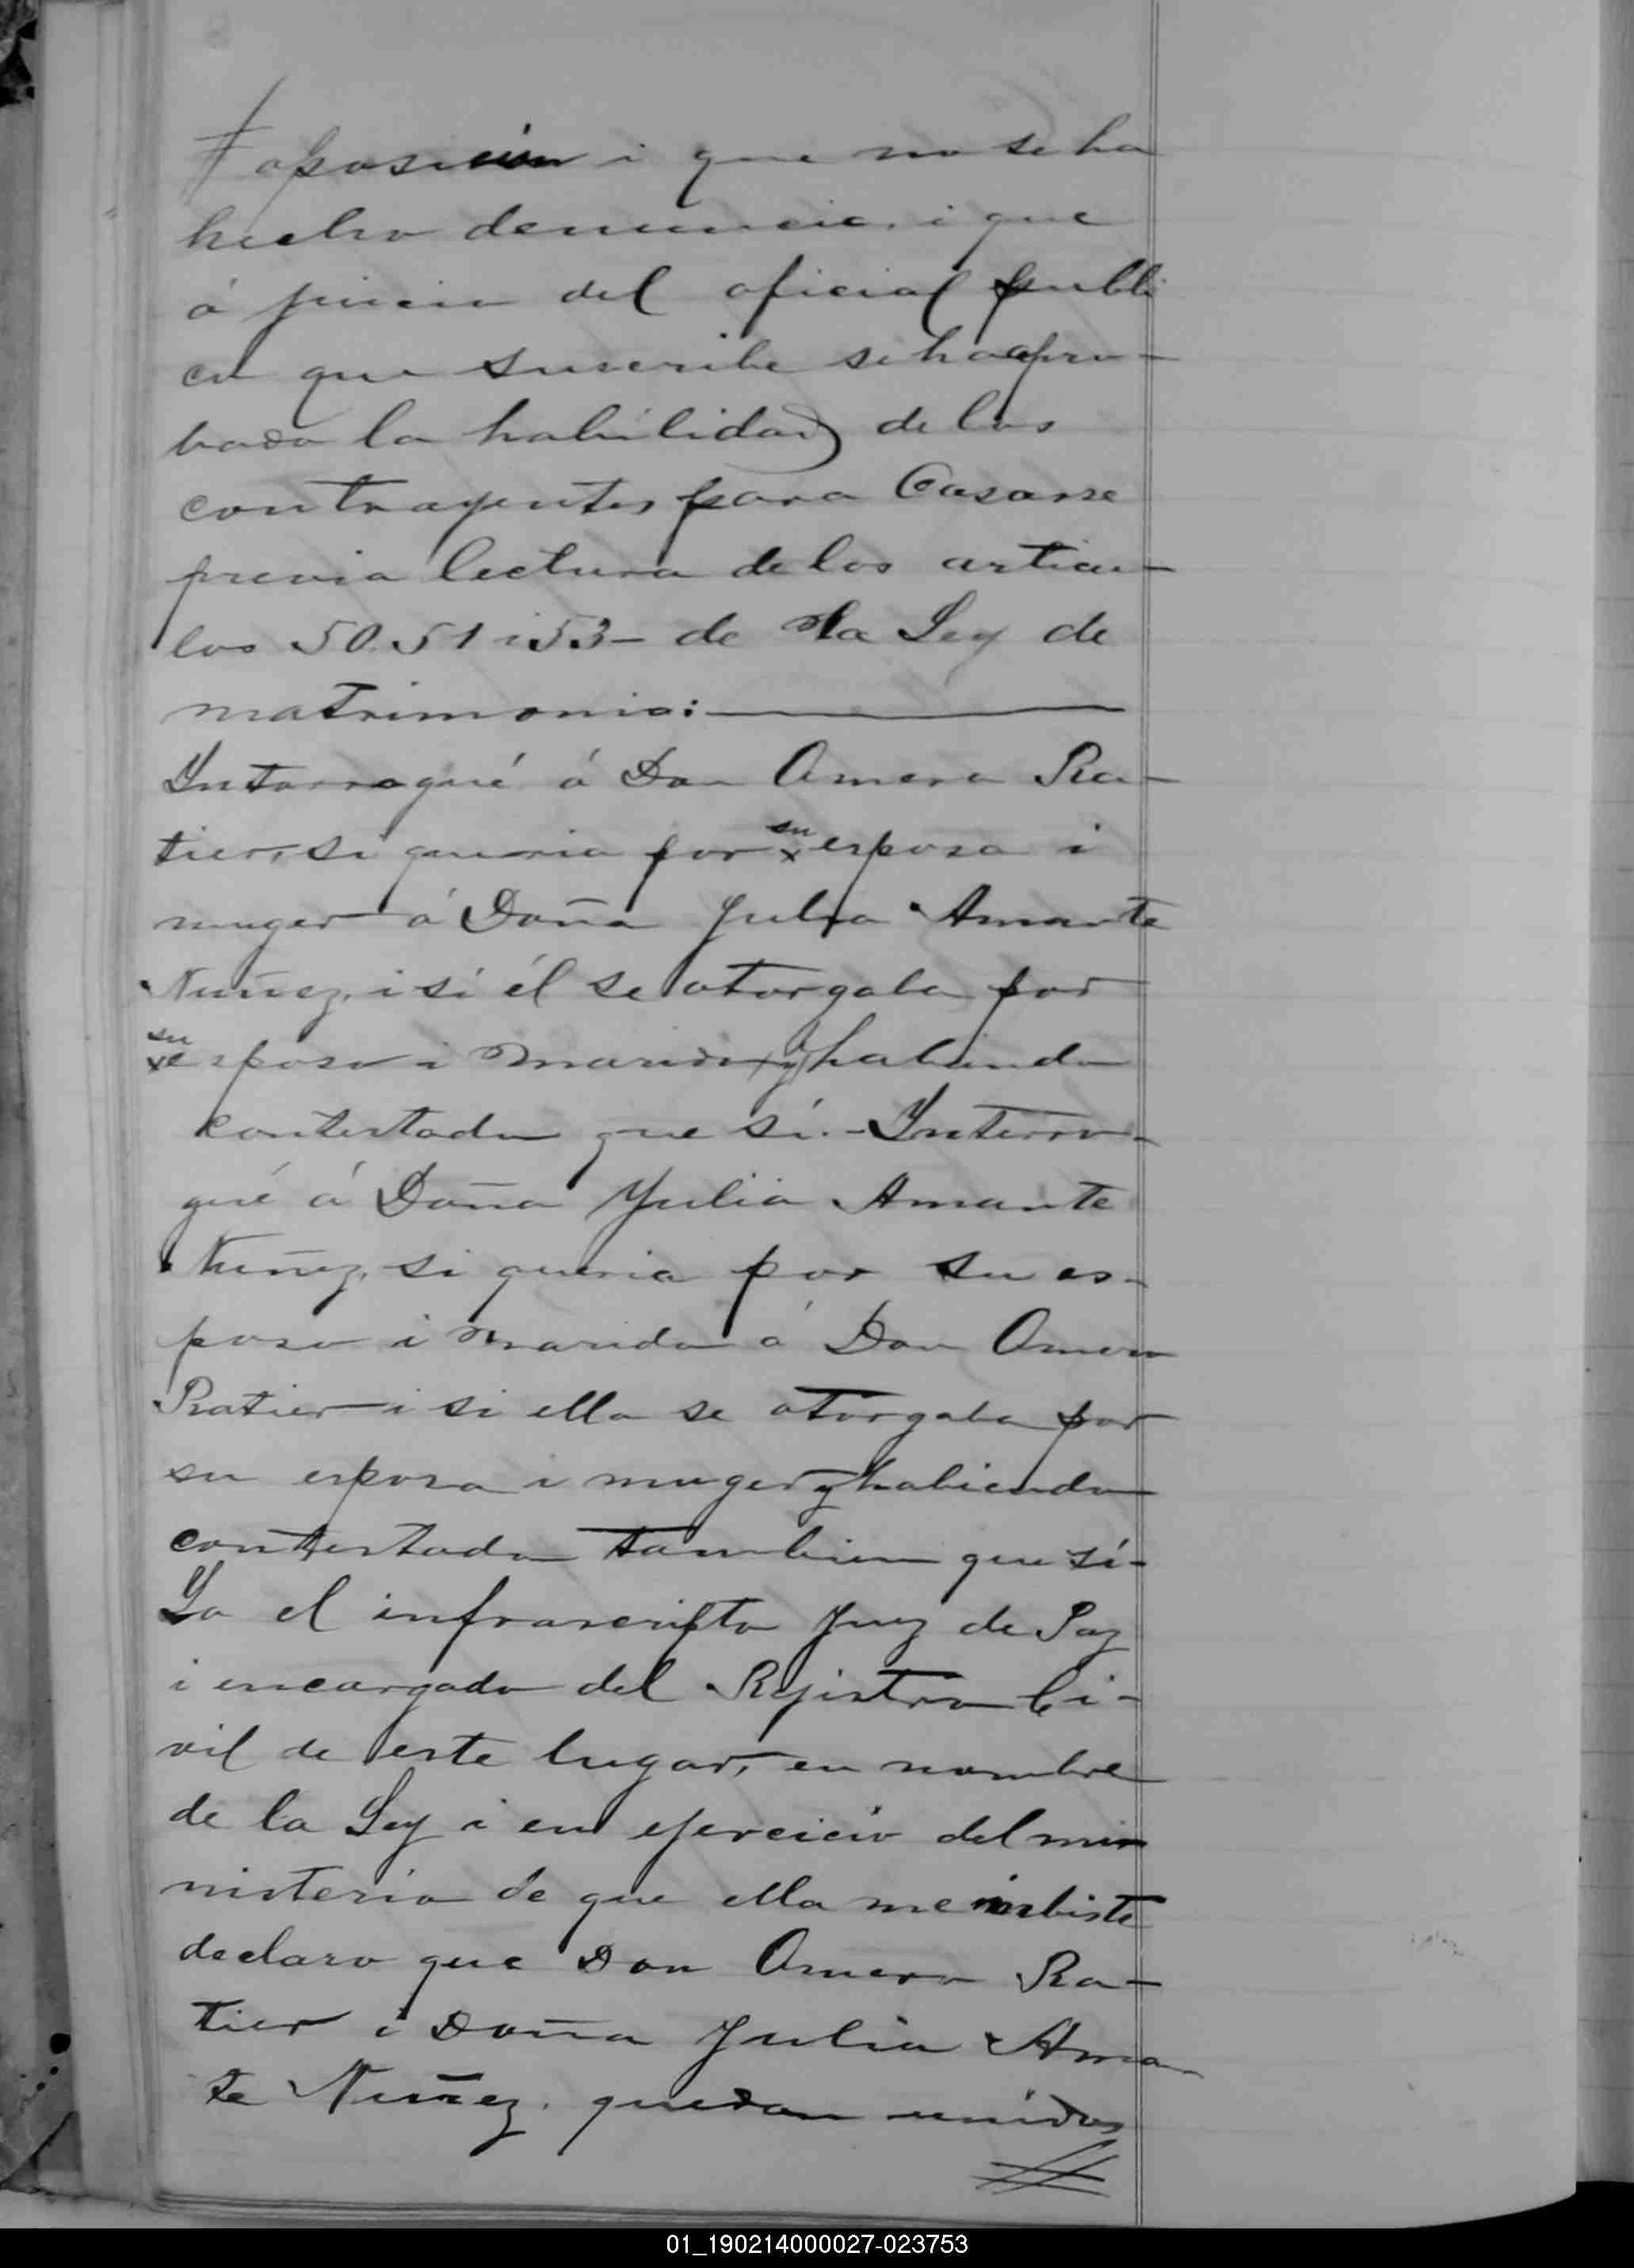 oposicion i que no se ha
hecho denuncia, i que
á juicio del oficial publi
co que suscribe se ha apro-
bado la habilidad de los
contrayentes para Casarse
previa lectura de los articu-
los 50. 51 i 53- de la Ley de
matrimonio:
Yntorrogué á Don Omero Ra-
tier, si queria por su esposa i
muger á Doña Julia Amante
Nuñez, i si él se otorgaba por
su esposo i marido, y habiendo
contestado que sí.- Ynterro-
gué á Doña Julia Amante
Nuñez, si queria por su es-
poso i marido á Don Omero
Ratier i si ella se otorgaba por
su esposa i muger y habiendo
contestado tambien que sí-
Yo el infrascripto Juez de Paz
i encargado del Rejistro Ci-
vil de este lugar, en nombre
de la Ley i en ejercicio del mi
nisterio de que ella me inbiste
declaro que Don Omero Ra-
tier i Doña Julia Aman
te Nuñez, quedan unidos
01_190214000027-023753